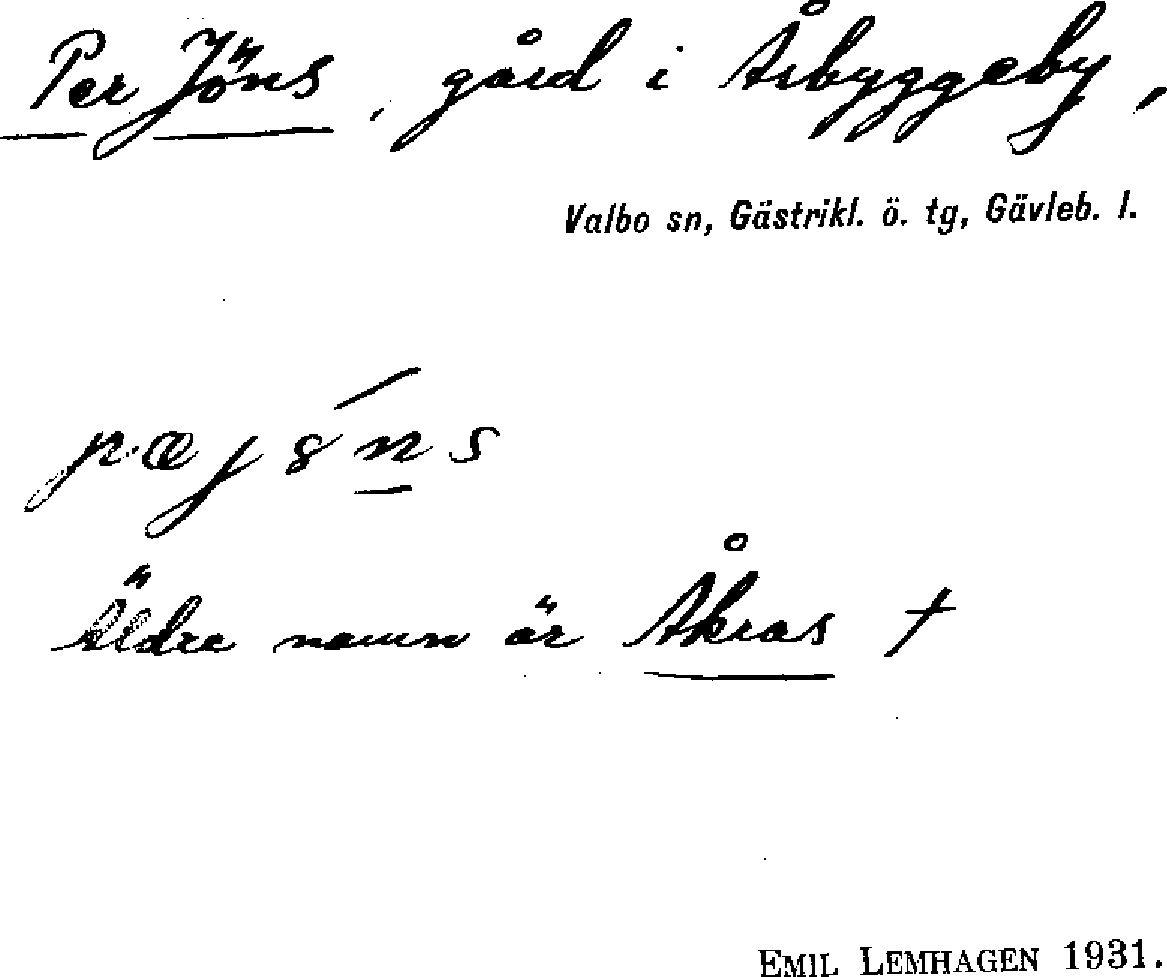 Per Jöns, gård i Årbyggeby,
Valbo sn, Gästrikl. ö. tg, Gävleb. l.
pæjȣ́ns
Äldre namn är Åkras †
EMIL LEMHAGEN 1931.